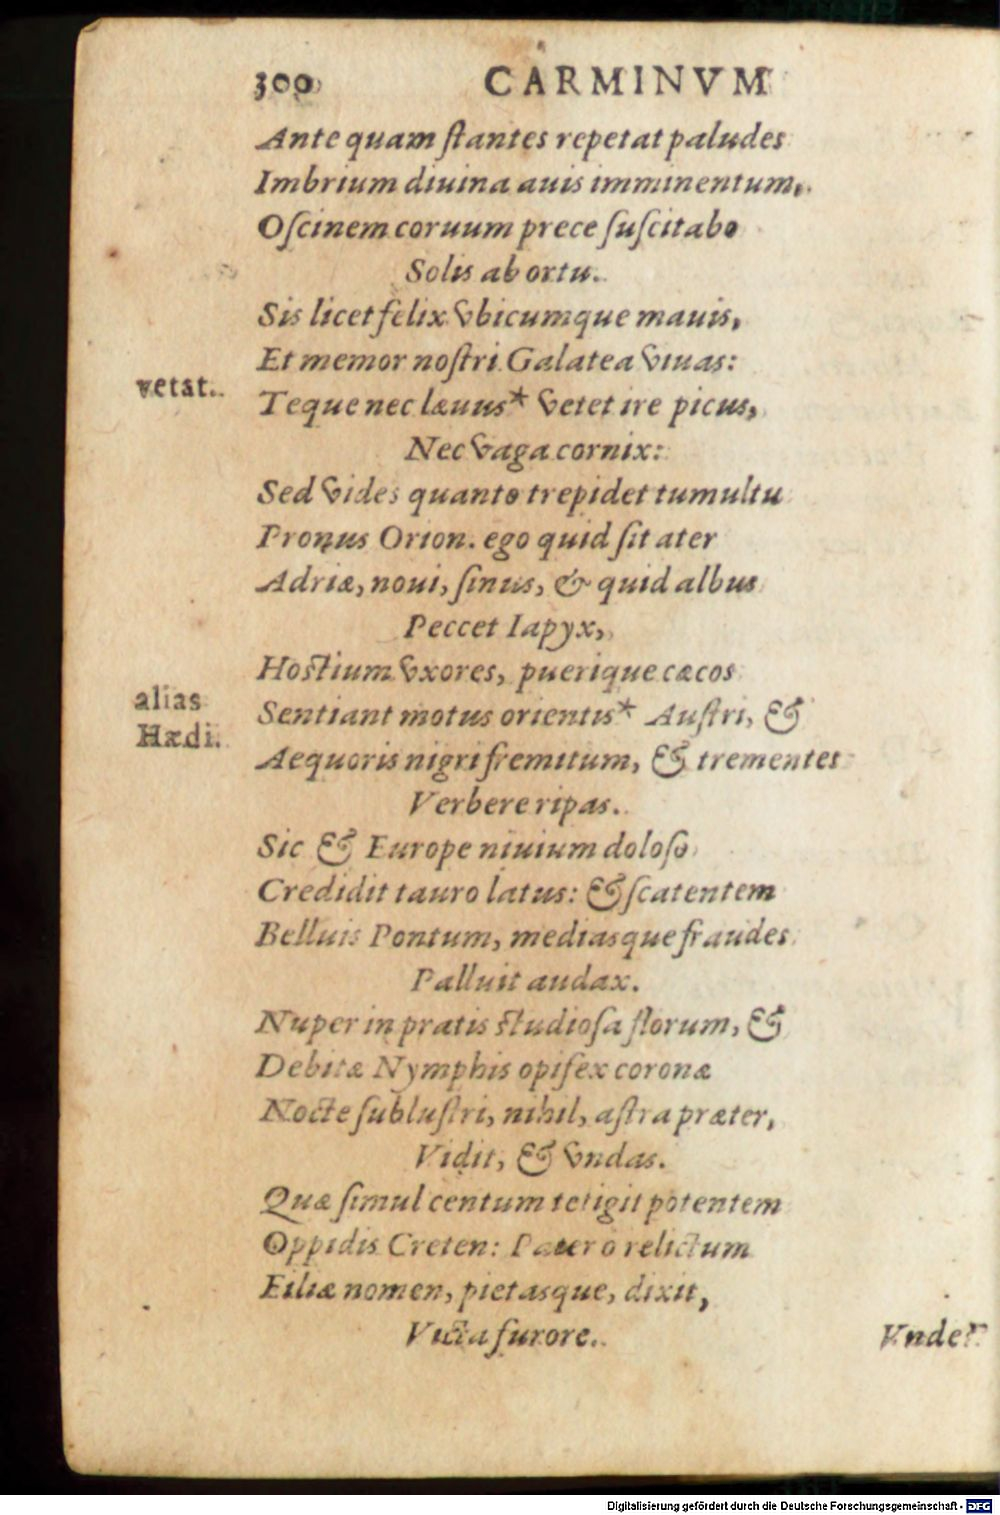 300 CARMINVM
Ante quam ſtantes repetat paludes
Imbrium diuina auis imminentum,
Oſcinem coruum prece ſuſcitabo
Solis ab ortu.
Sis licet felix vbicumque mauis,
Et memor noſtri Galatea viuas:
vetat.
Teque nec læuus* vetet ire picus,
Nec vaga cornix:
Sed vides quanto trepidet tumultu
Pronus Orion. ego quid ſit ater
Adriæ, noui, ſinus, & quid albus
Peccet Iapyx,
Hoſtium vxores, puerique cæcos
alias
Sentiant motus orientis* Auſtri, &
Hædi.
Aequoris nigri fremitum, & trementes
Verbere ripas.
Sic & Europe niuium doloſo
Credidit tauro latus: & ſcatentem
Belluis Pontum, mediasque fraudes
Palluit audax.
Nuper in pratis ſtudioſa florum, &
Debitæ Nymphis opifex coronæ
Nocte ſubluſtri, nihil, aſtra præter,
Vidit, & vndas.
Quæ ſimul centum tetigit potentem
Oppidis Creten: Pater ô relictum
Filiæ nomen, pietasque, dixit,
Victa furore.
Vnde?
Digitalisierung gefördert durch die Deutsche Forschungsgemeinschaft - DFG